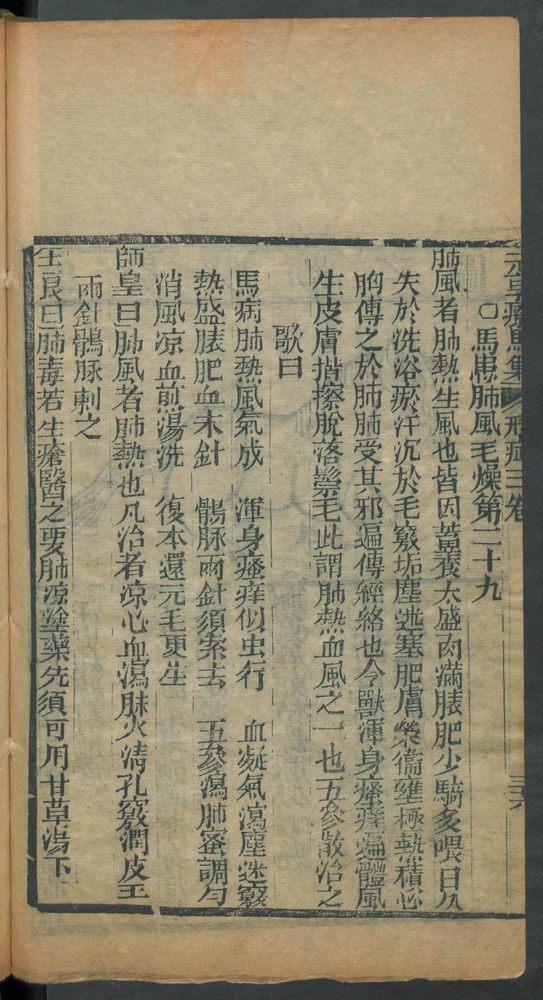 元亨療馬集 形症三卷 三六
○馬患肺風毛燥第二十九
肺風者肺熱生風也皆因蒭養太盛肉滿膘肥少騎多喂日久
失於洗浴瘀汗沉於毛竅垢塵迷塞肥膚榮衞壅極熱積心
胸傳之於肺肺受其邪遍傳經絡也令獸渾身瘙痒遍體風
生皮膚揩擦脫落鬃毛此謂肺熱血風之一也五參散治之
歌曰
馬病肺熱風氣成 渾身瘙痒似虫行 血凝氣瀉塵迷竅
熱盛膘肥血未針 鶻脉兩針須索去 五參瀉肺蜜調勻
消風凉血煎湯洗 復本還元毛更生
師皇曰肺風者肺熱也凡治者凉心血瀉脉火淸孔竅潤皮毛
兩針鶻脉刺之
王良曰肺毒若生瘡醫之要肺凉塗藥先須可用甘草湯下